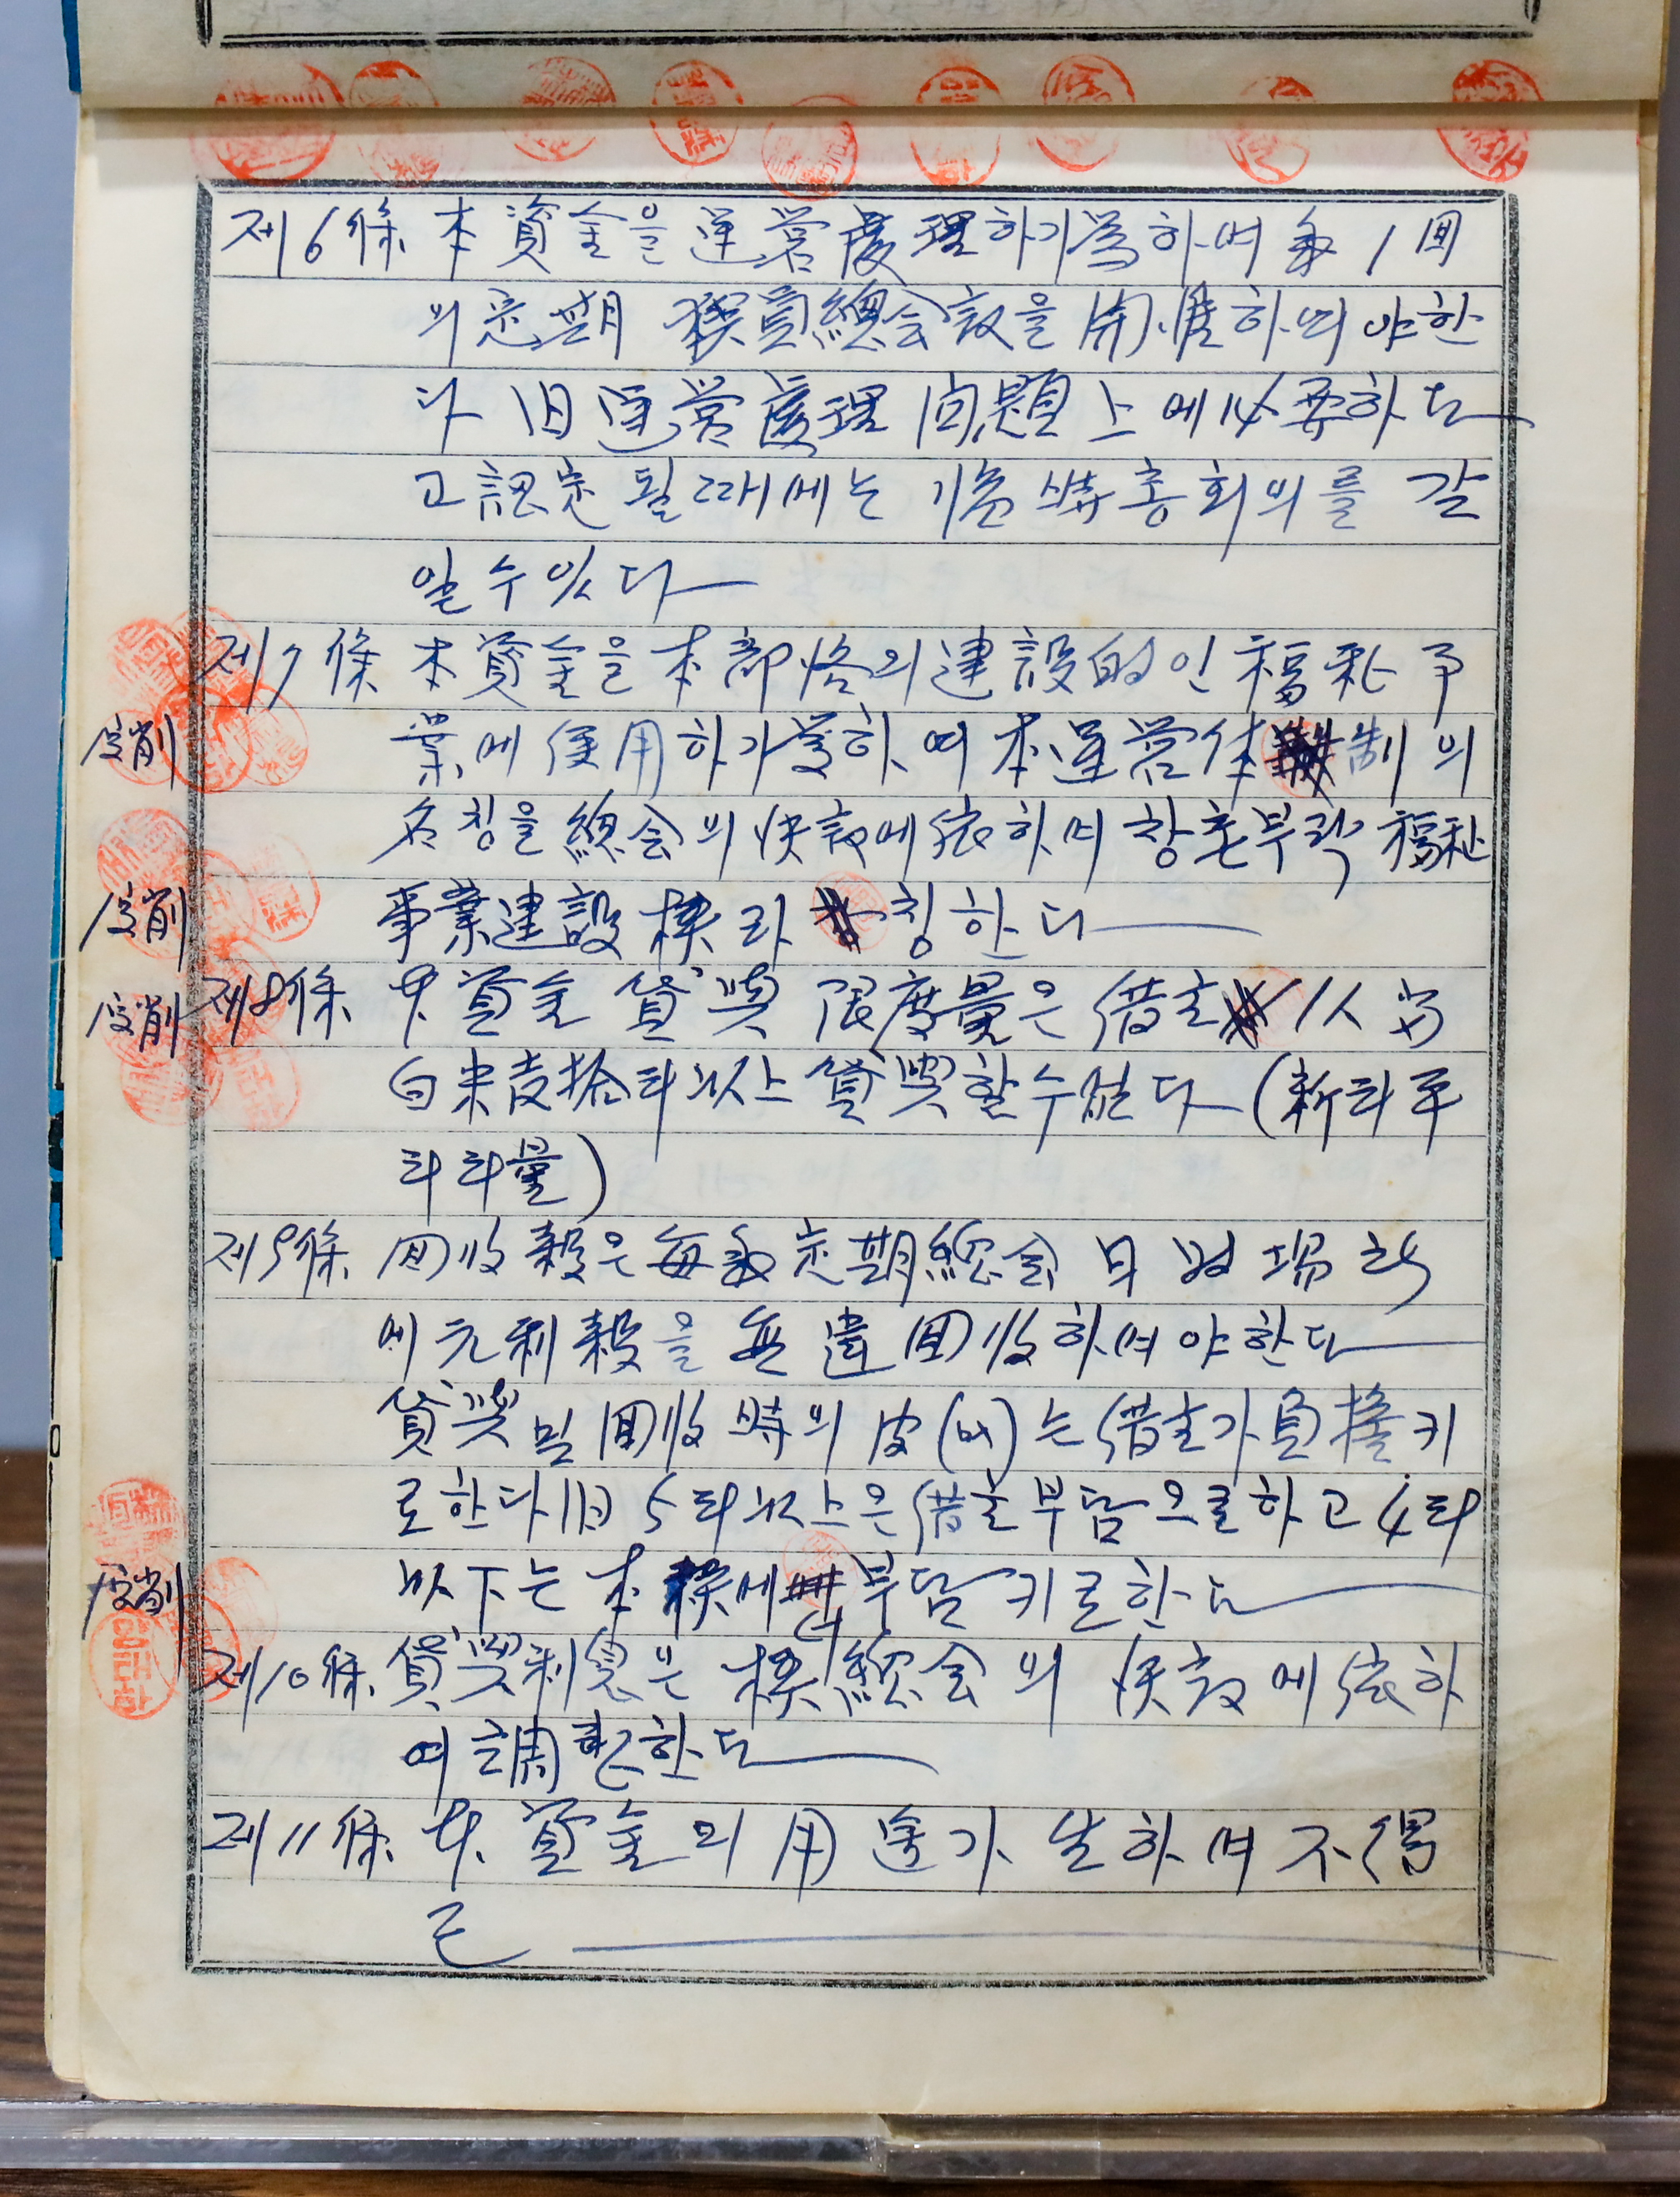 제6條 本資金을 運営處理하기爲하여 每1回
의 定期 稧員總会議을 開催하여야한
다 但 運営處理 問題上에 必要하다
고 認定될때에는 臨時총회의를 갈
일수있다
제7條 本資金을 本部洛의 建設的인 福祉事
業에 使用하기爲하여 本運営体制의
名칭을 總会의 決議에 依하여 창촌부락 福祉
事業建設稧라 칭한다
제8條 本資金 貸與 限度量은 借主 1人当
白米壹拾叺以上 貸與할수없다 (新叺平
叺叺量)
제9條 回收穀은 每年定期總会日 場所
에 元利穀을 無違回收하여야한다
貸與 및 回收時의 皮(비)는 借主가 負擔키
로한다 但 5叺以上은 借主부담으로하고 4叺
以下는 本稧에 부담키로한다
제10條 貸與利息은 稧總会의 決議에 依하
여 調整한다
제11條 本資金의 用途가 生하여 不得
已
一字削
一字削
一字削
一字削